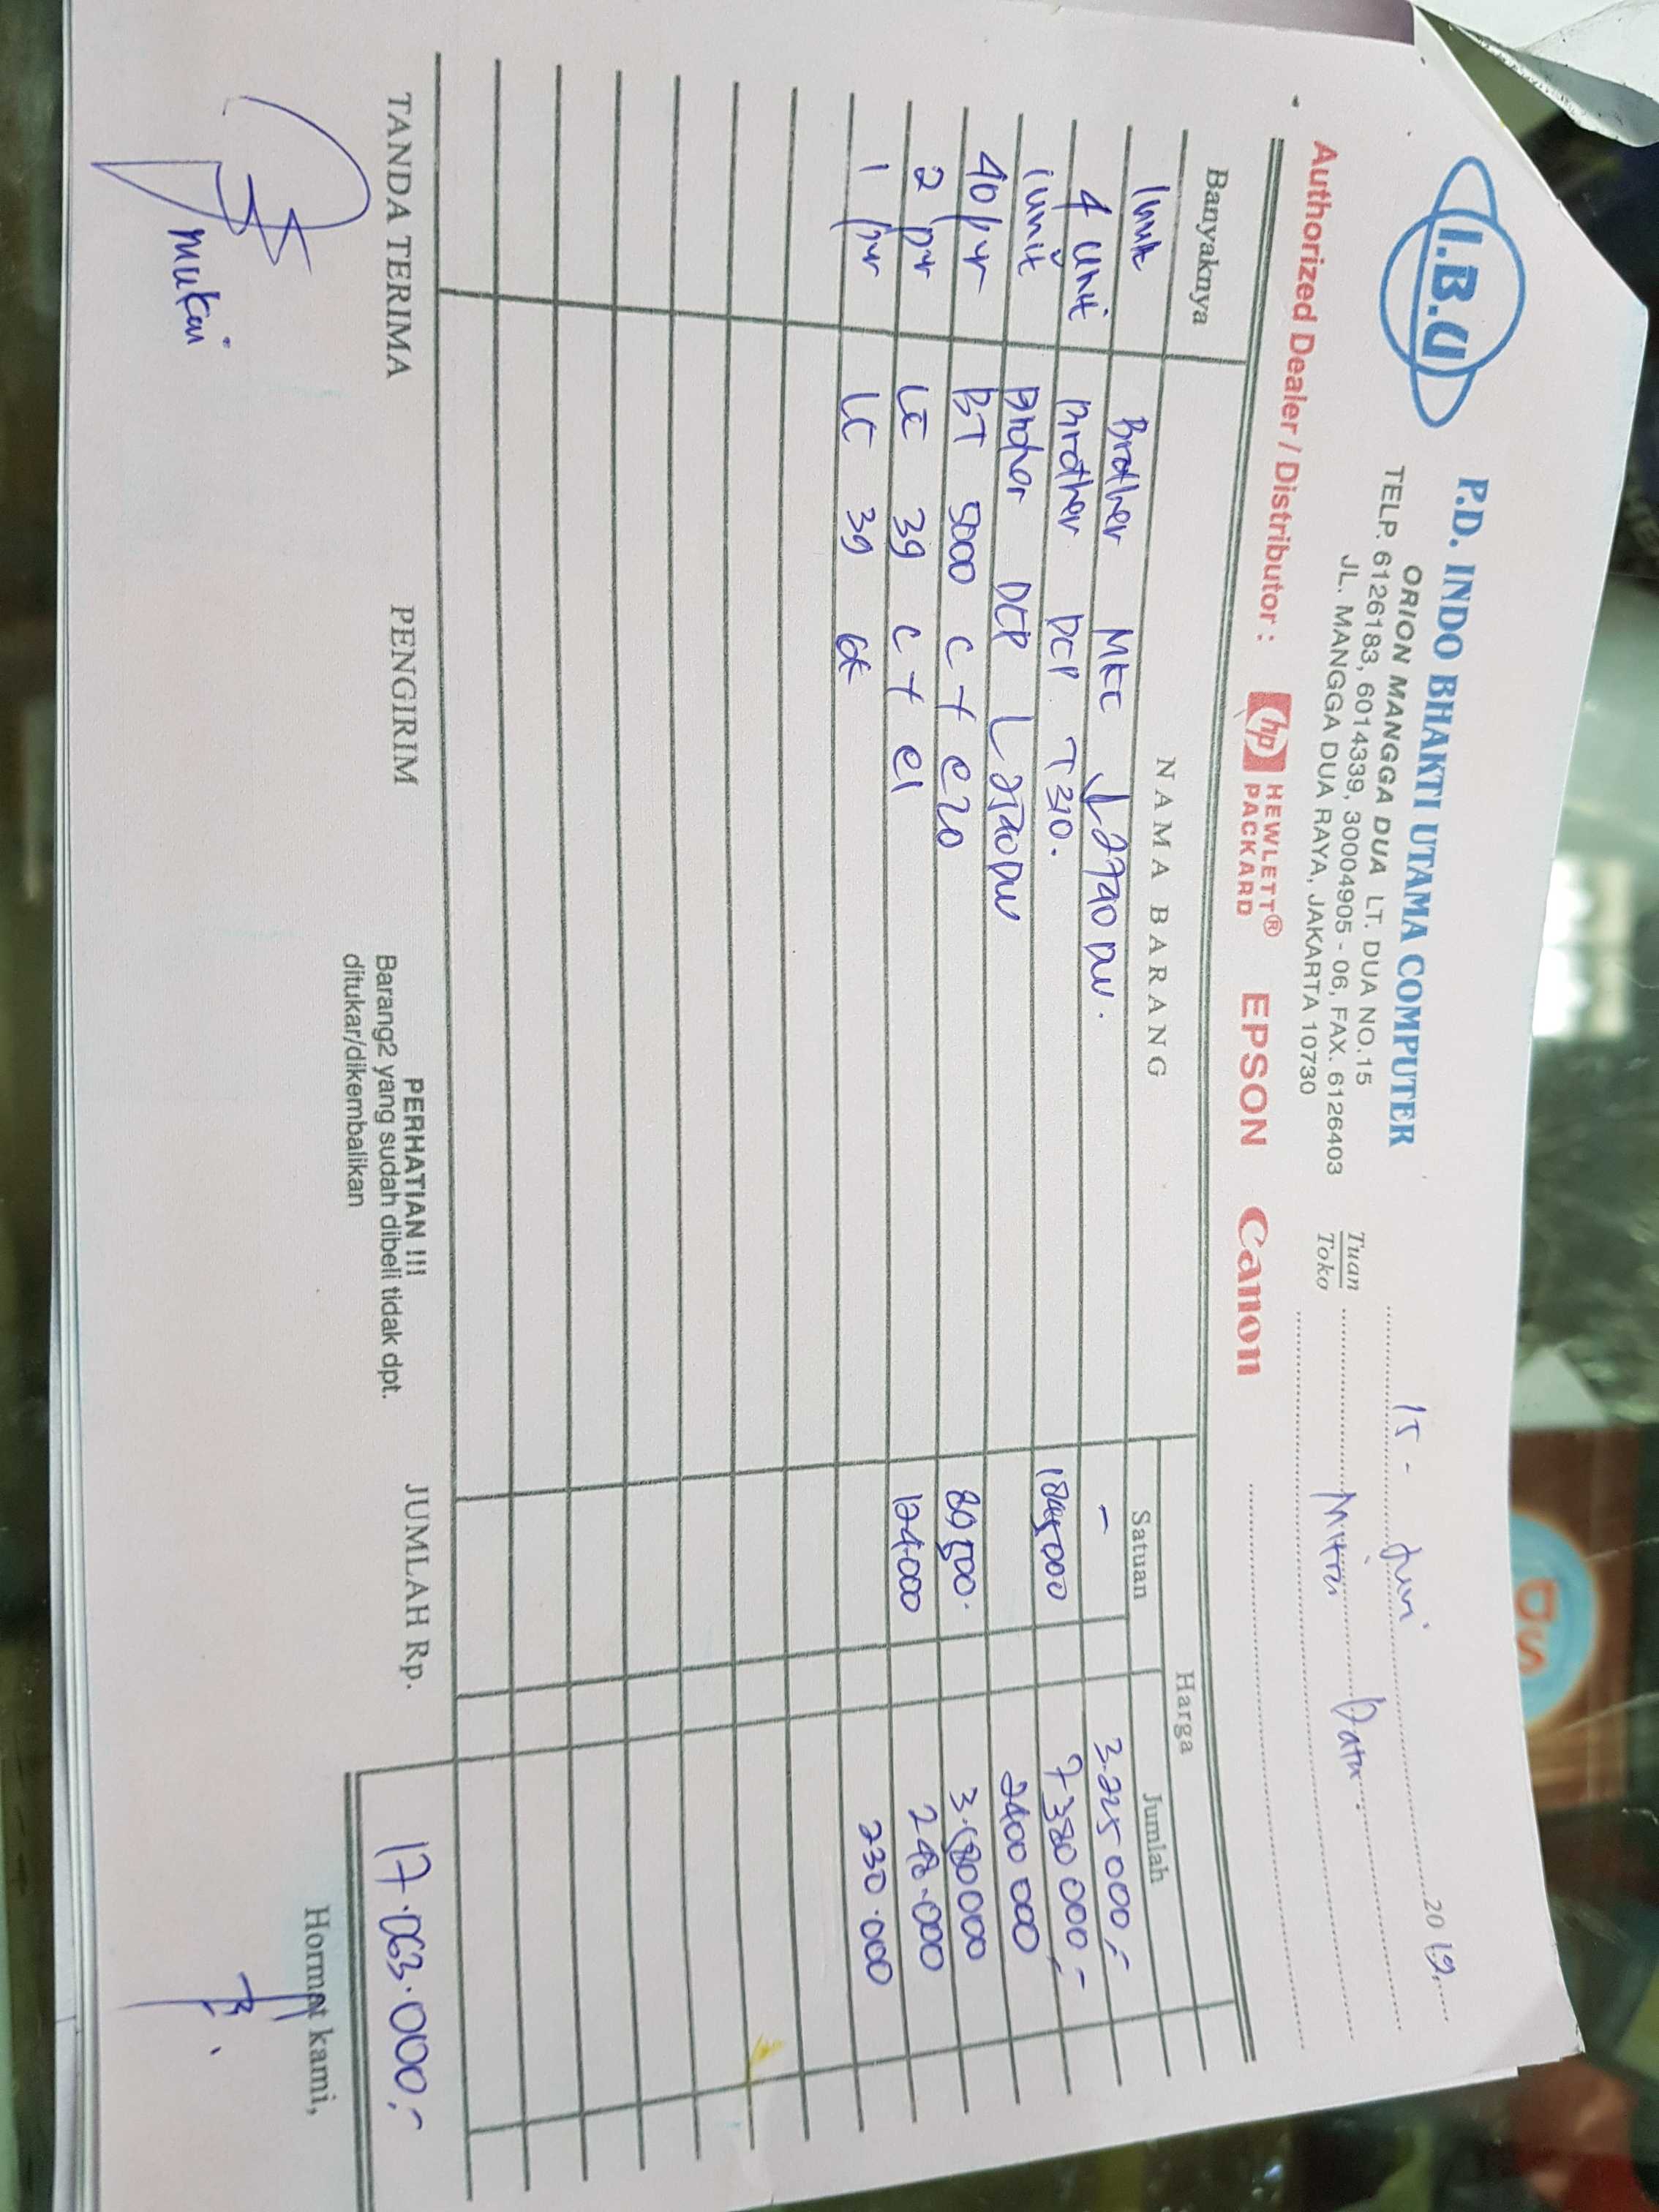 I.B.U
P.D. INDO BHAKTI UTAMA COMPUTER
ORION MANGGA DUA LT. DUA NO.15
TELP. 6126183, 6014339, 30004905 - 06, FAX. 6126403
JL. MANGGA DUA RAYA, JAKARTA 10730
15 - Juni 2019
Tuan
Toko Mitra Data
Authorized Dealer / Distributor : hp HEWLETT® PACKARD EPSON Canon
Banyaknya NAMA BARANG Harga
Satuan Jumlah
1 unit Brother MFC L2740 DW. - 3.225 000,-
4 unit Brother DCP T310. 1845000 7380 000,-
1 unit Brother DCP L2540DW 2400 000
40 pcs BT 5000 C + e20 89,500. 3.580000
2 pcs LC 39 C + e1 124.000 248.000
1 pcs LC 39 230.000
TANDA TERIMA PENGIRIM
PERHATIAN !!!
Barang2 yang sudah dibeli tidak dpt.
ditukar/dikembalikan
JUMLAH Rp. 17.063.000,-
Hormat kami,